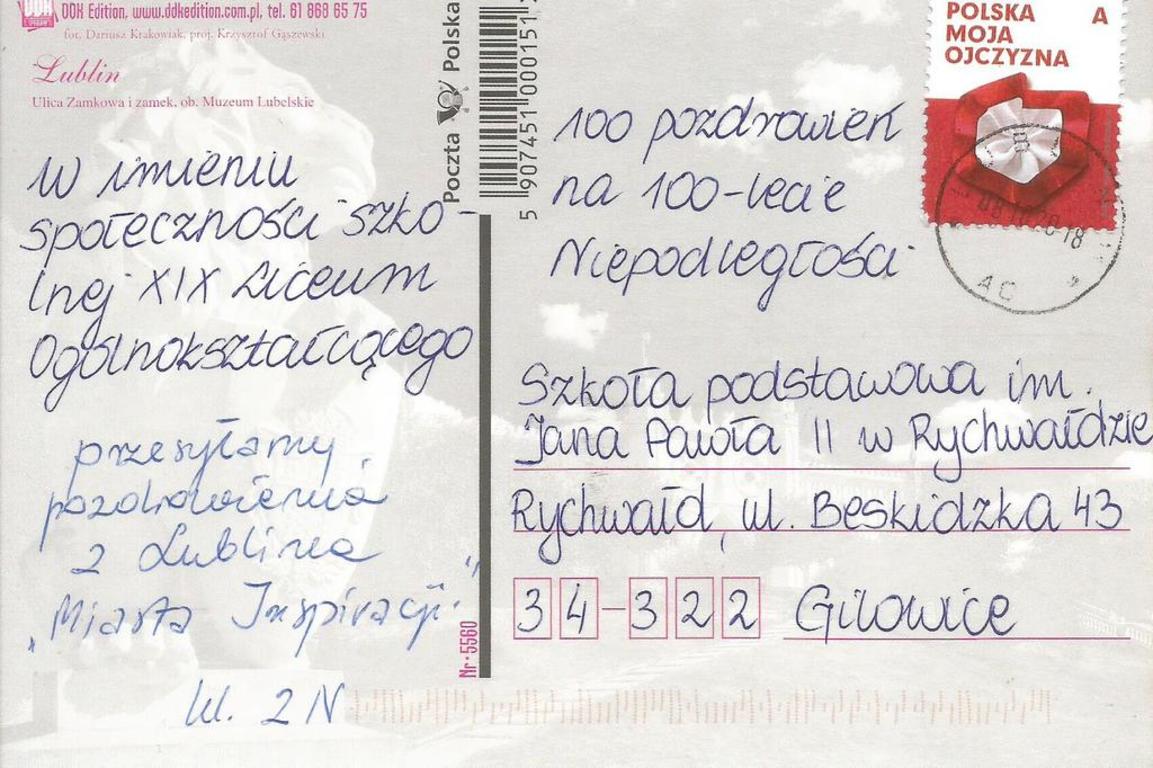 DDK Edition, www.ddkedition.com.pl, tel. 61 868 65 75
fot. Dariusz Krakowiak, proj. Krzysztof Gąszewski
Lublin
Ulica Zamkowa i zamek, ob. Muzeum Lubelskie
W imieniu
społeczności szko-
lnej XIX Liceum
Ogólnokształcącego
przesyłamy
pozdrowienia
z Lublina
„Miasta Inspiracji"
kl. 2 N
Poczta Polska
5 907451 000151
Nr 5560
POLSKA A
MOJA
OJCZYZNA
100 pozdrowień
na 100-lecie
Niepodległości
Szkoła podstawowa im.
Jana Pawła II w Rychwałdzie
Rychwałd, ul. Beskidzka 43
34-322 Gilowice